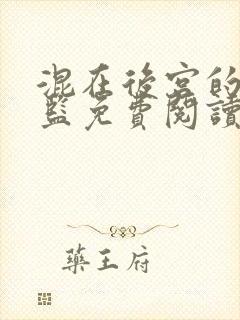 混在後宮的
藍免費閱讀
藥王府